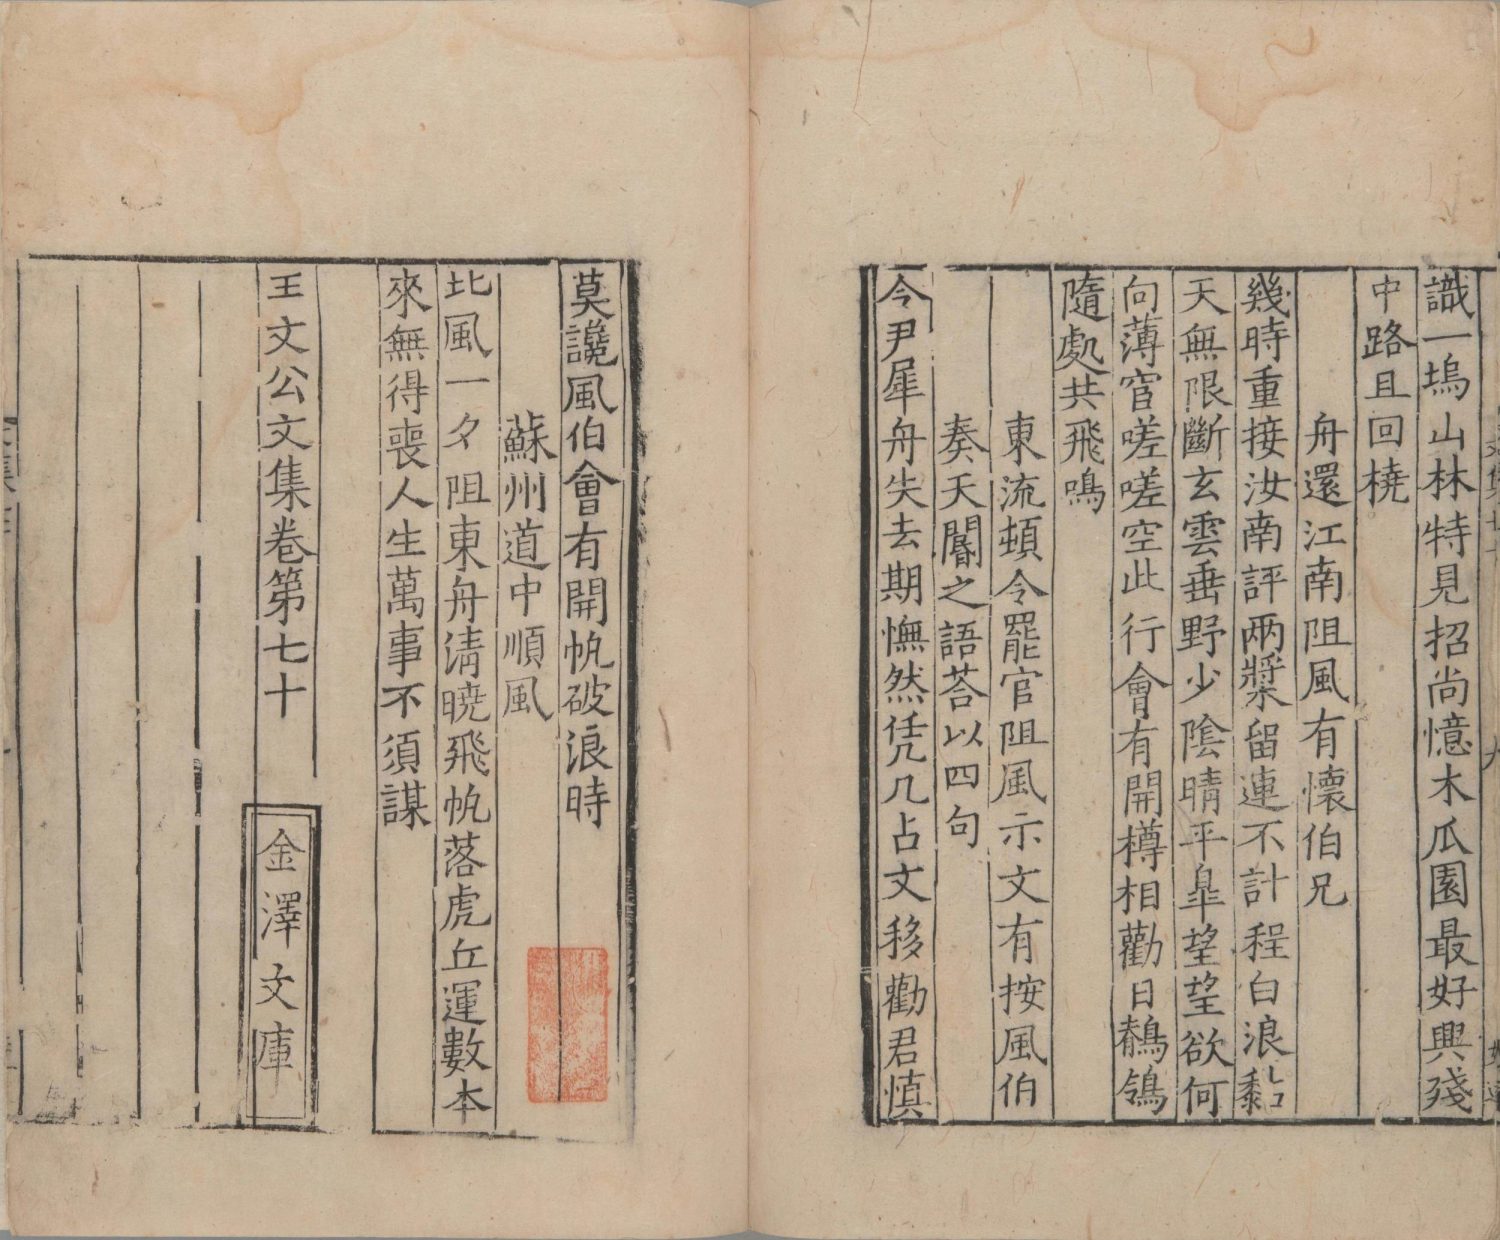 識一塢山林特見招尚憶木瓜園最好興殘
中路且回橈
舟還江南阻風有懷伯兄
幾時重接汝南評兩槳留連不計程白浪黏
天無限斷玄雲垂野少陰晴平臯望望欲何
向薄宦嗟嗟空此行會有開樽相勸日鶺鴒
隨處共飛鳴
東流頓令罷官阻風示文有按風伯
奏天閽之語荅以四句
令尹犀舟失去期憮然凭几占文移勸君慎
莫讒風伯會有開帆破浪時
蘇州道中順風
北風一夕阻東舟清曉飛帆落虎丘運數本
來無得喪人生萬事不須謀
王文公文集卷第七十
金澤文庫